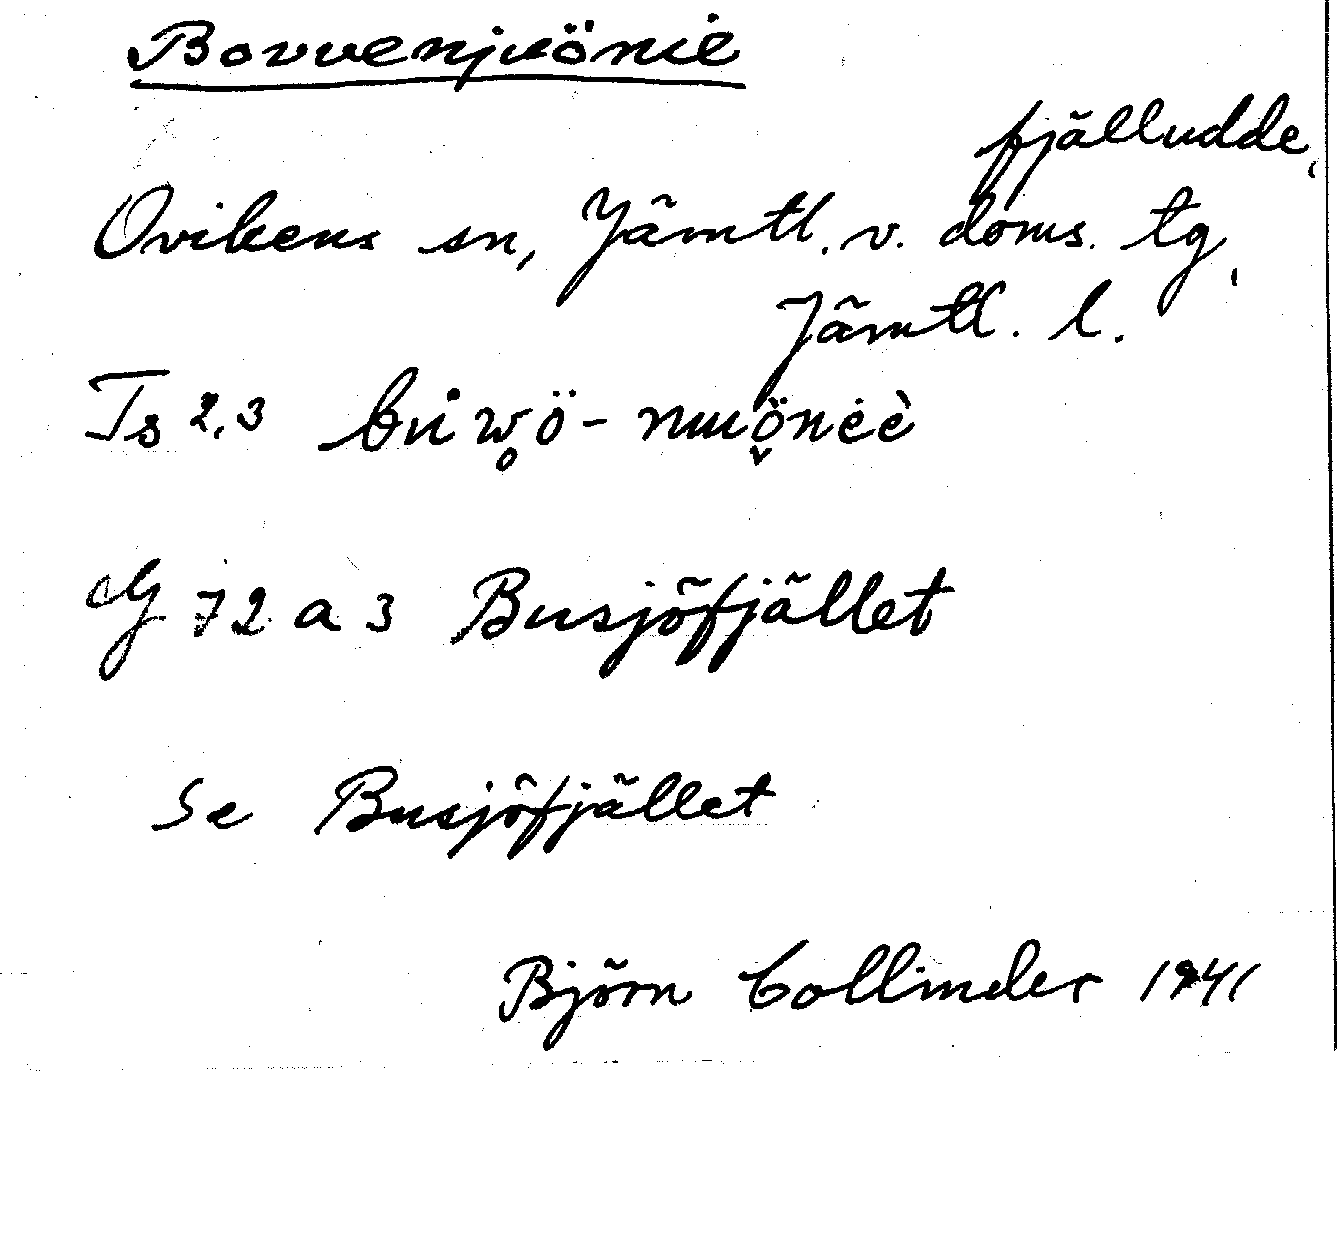 Bovvenjuönie
fjälludde,
Ovikens sn, Jämtl. v. doms. tg,
Jämtl. l.
Ts 2,3
G 72 a 3 Busjöfjället
Se Busjöfjället
Björn Collinder 1941